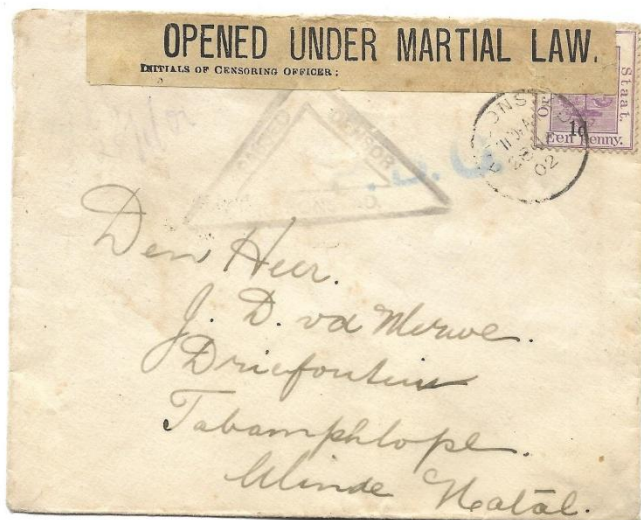 OPENED UNDER MARTIAL LAW.
INITIALS OF CENSORING OFFICER:
Staat.
1d
Een Penny.
02
Den Heer.
J. D. vd Merwe.
Driefontein
Tabamphlope.
Ulinde Natal.